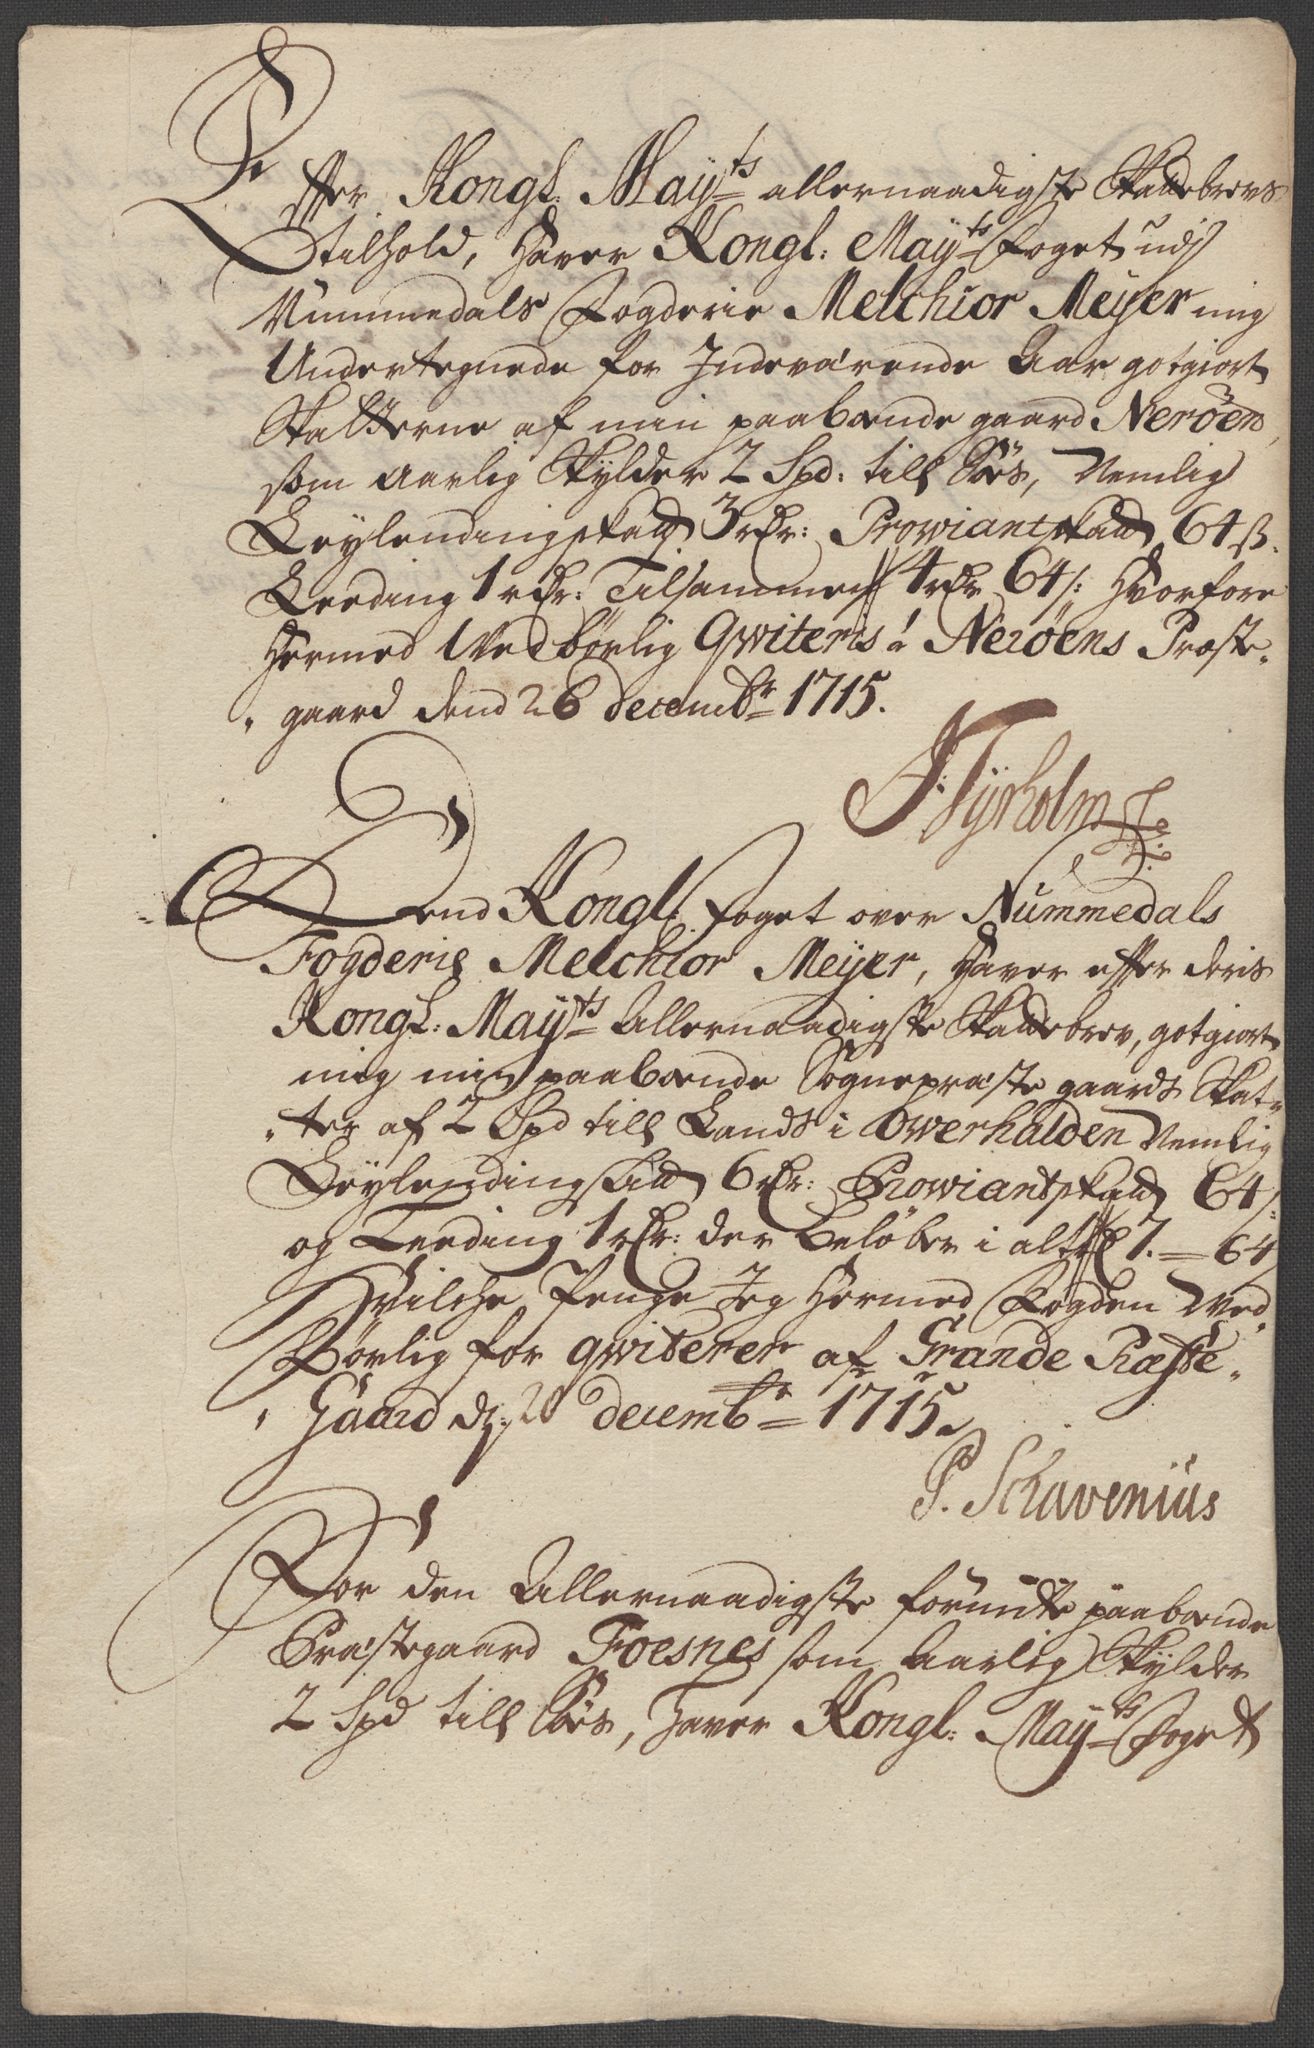 Effter Kongl: Maÿts allernaadigste Skattebrevs
Tilhold, haver Kongl: Maÿts Foget udj
Nummedals Fogderie Melchior Meÿer mig
Undertegnede for Indeværende Aar gotgiort
Skatterne af min paaboende gaard Nerøen,
som aarlig Skylder 2 Spd: till Søes, Nemlig
Leylendingskatt 3 rdr: Prowiantskatt 64 s.
Leeding 1 rdr: Tilsammen 4 rdr 64 s: Hvorfore
Hermed Ved børlig Qwiteris! Nerøens Præste„
„gaard dend 26 decembr 1715.
Tyrholm
Dend Kongl: foget over Nummedals
Fogderie Melchior Meÿer, Haver effter deris
Kongl: Maÿts Allernaadigste Skattebrev, gotgiort
mig min paaboende Sognepræste gaards Skat„
„ter af 2 Spd till Lands i Owerhalden Nemlig
Leylendingskatt 6 rdr: Prowiantskatt 64 s:
og Leeding 1 rdr: der beløber i alt 7. – 64
Hvilche Penge Jeg Hermed Fogden Ved„
Børlig for qwiterer af Grande Præste„
„Gaard d: 28 decembr 1715.
P. Schavenius
For den Allernaadigste forundte paaboende
Præstegaard Foesnes som Aarlig Skylder
2 Spd till Søes, haver Kongl: Maÿts Foget